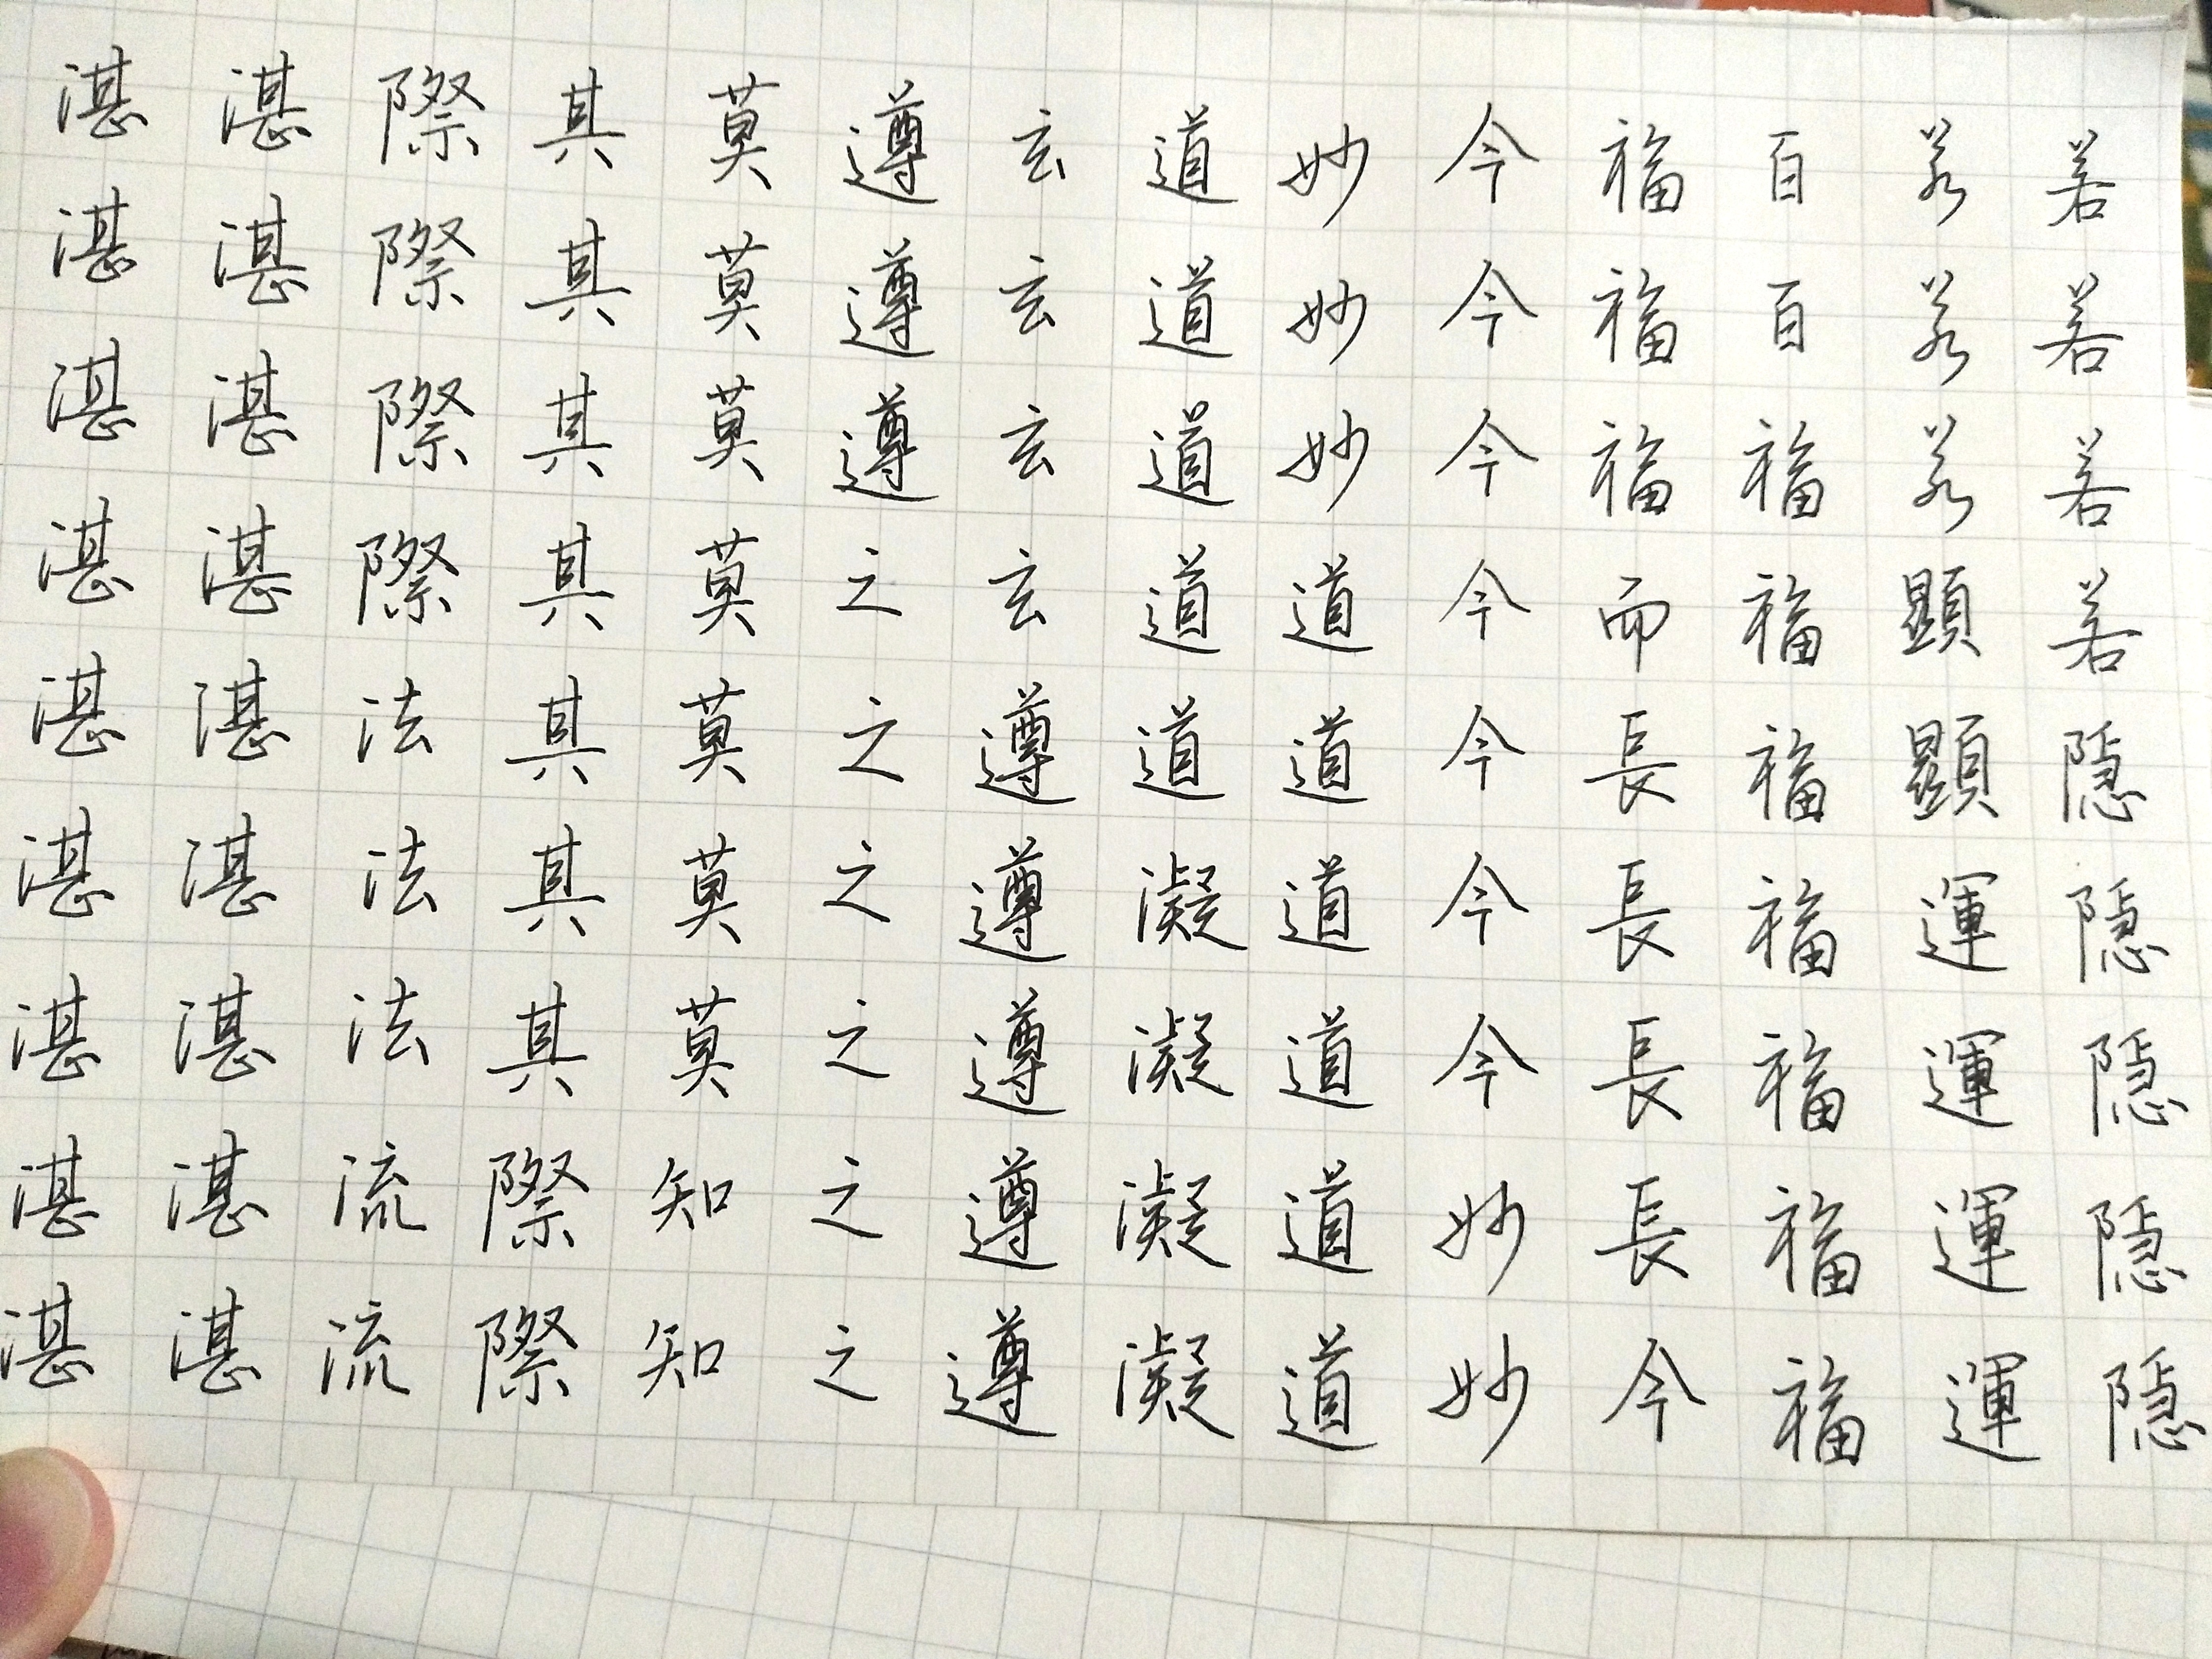 若若若若隐隐隐隐隐
若若若顯顯運運運運
百百福福福福福福福
福福福而長長長長今
今今今今今今今妙妙
妙妙妙道道道道道道
道道道道道凝凝凝凝
玄玄玄玄遵遵遵遵遵
遵遵遵之之之之之之
莫莫莫莫莫莫莫知知
其其其其其其其際際
際際際際法法法流流
湛湛湛湛湛湛湛湛湛
湛湛湛湛湛湛湛湛湛